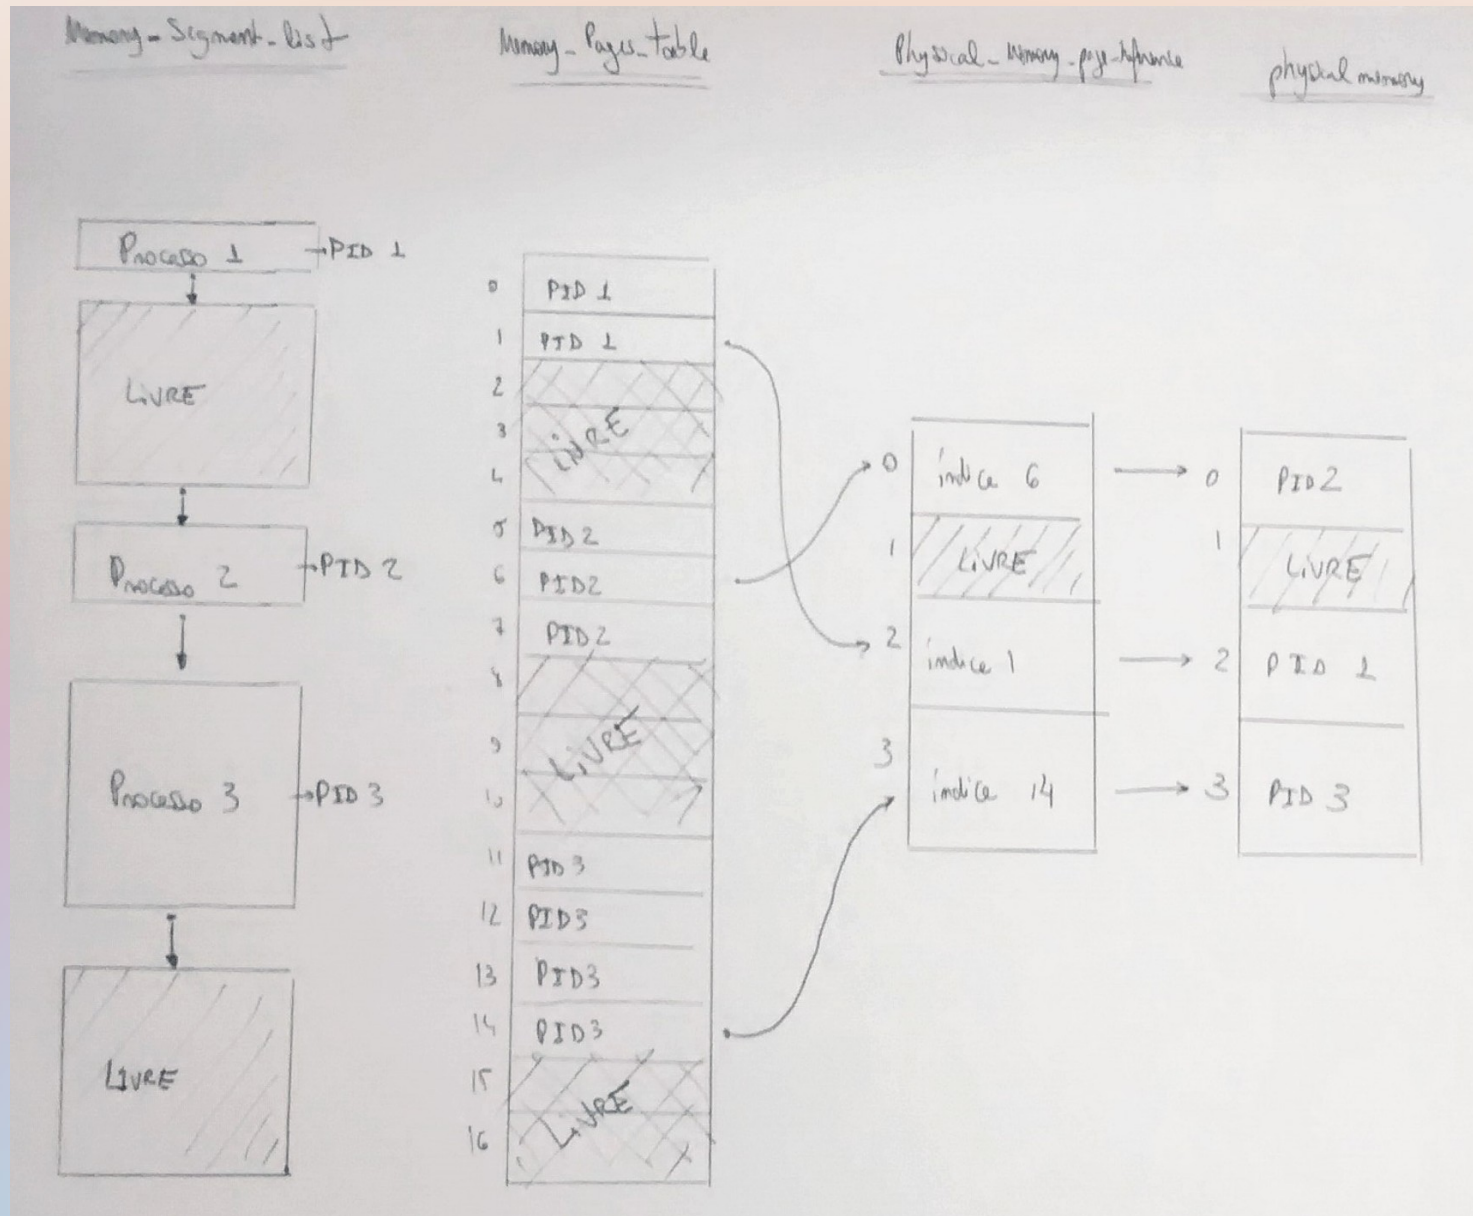 Memory_Segment_list
Memory_Pages_table
Physical_Memory_page_reference
physical memory
Processo 1
PID 1
LiVRE
Processo 2
PID 2
Processo 3
PID 3
LIVRE
0 PID 1
1 PID 1
2
3 LIVRE
4
5 PID2
6 PID2
7 PID2
8
9 LIVRE
10
11 PID3
12 PID3
13 PID3
14 PID3
15
16 LiVRE
0 índice 6
1 LiVRE
2 índice 1
3 índice 14
0 PID2
1 LiVRE
2 PID 1
3 PID 3